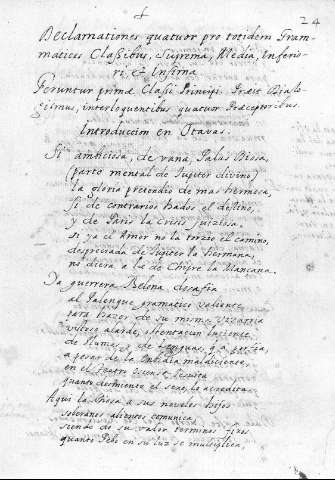 24
Declamationes quatuor pro totidem Gram-
maticis Classibus, Suprema, Media, Inferio-
ri, et Infima
Feruntur primæ Classi Principi. Præit
interloquentibus quatuor Præceptoribus.
Introduccion en Otavas.
Si ambiciosa, de vana, Palas Bizza,
(parto mental de Jupiter divino)
la gloria pretendio de mas hermosa,
si de contrarios hados el destino,
y de Paris la Crisis juizissa,
si ya el Amor no la torzio el camino,
despreciada de Jupiter la hermana,
no diera a la de Chipre la Manzana.
Ya guerrera Belona desafia
al Palenque gramatico valiente
para hazer de su misma
vistoso alarde, obstentacion luciente
de Pluma, y de Lenguas, q a porfia,
a pesar de la Embidia maldiciente,
en el Teatro
quanto desmiente el sexo, lo acredita
Aqui la Diosa a sus noveles hijos
soberanos alientos comunica,
siendo de su valor terminos fixos
quanto Febo en su luz se multiplica,